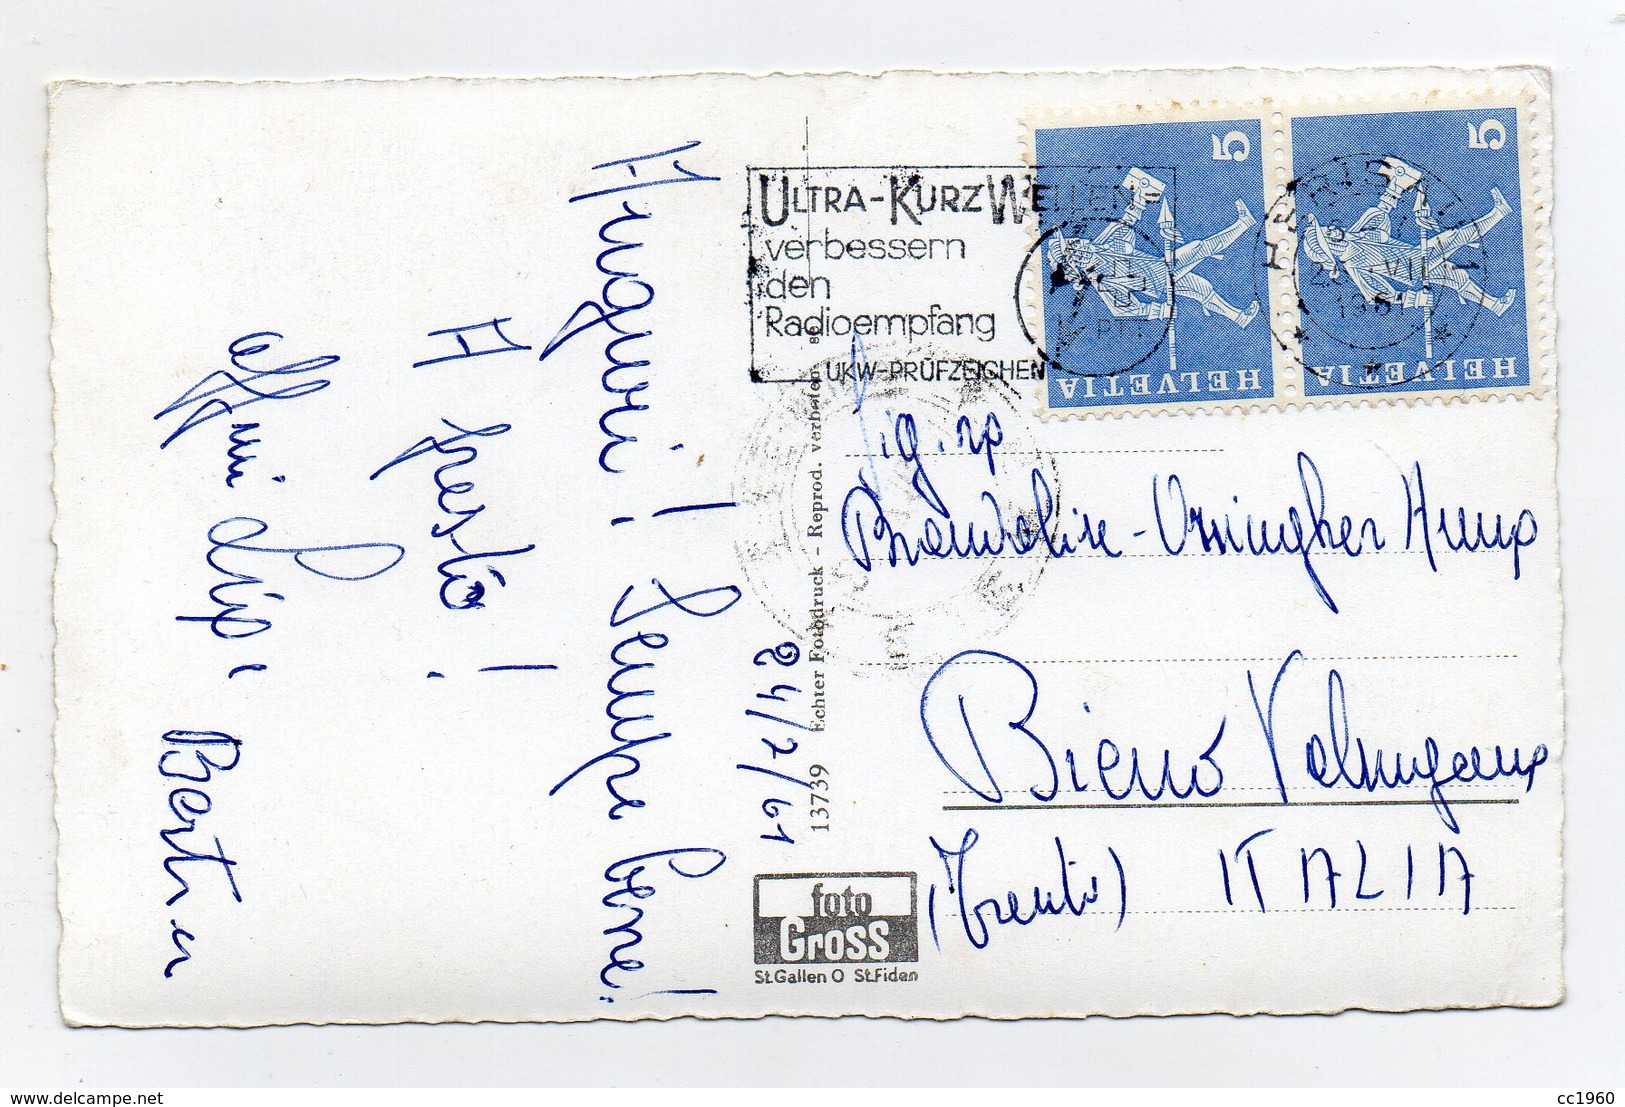 Auguri! Sempre bene!
A presto!
Bertin
24/7/61
ULTRA-KURZWELLEN=
verbessern
den
Radioempfang
UKW-PRÜFZEICHEN
PTT
HERISAU 1
VII
1961
5
HELVETIA
5
HELVETIA
13739 Echter Fotodruck - Reprod. verboten
foto
Gross
St.Gallen O St.Fiden
Bieno Valsugana
(Trento) ITALIA
delcampe.net
cc1960